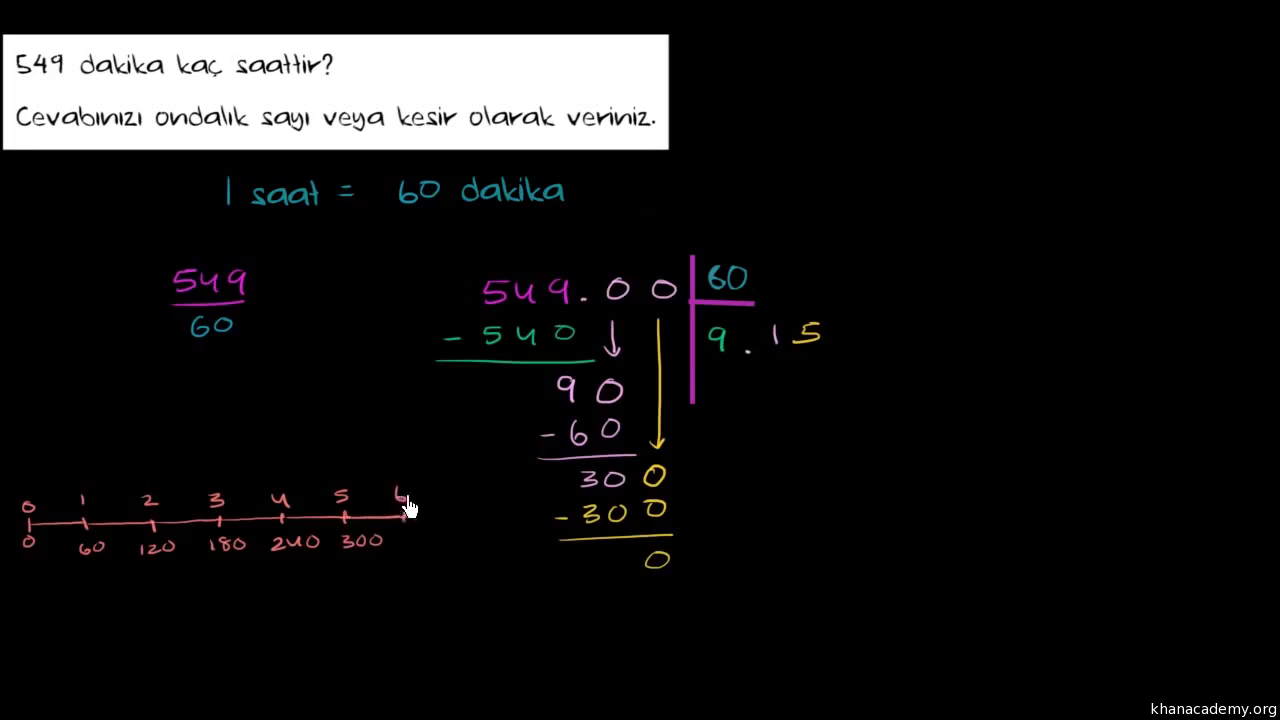 549 dakika kaç saattir?
Cevabınızı ondalık sayı veya kesir olarak veriniz.
1 saat = 60 dakika
549
60
549.00
60
9.15
- 540
90
- 60
300
- 300
0
0 1 2 3 4 5 6
0 60 120 180 240 300
khanacademy.org